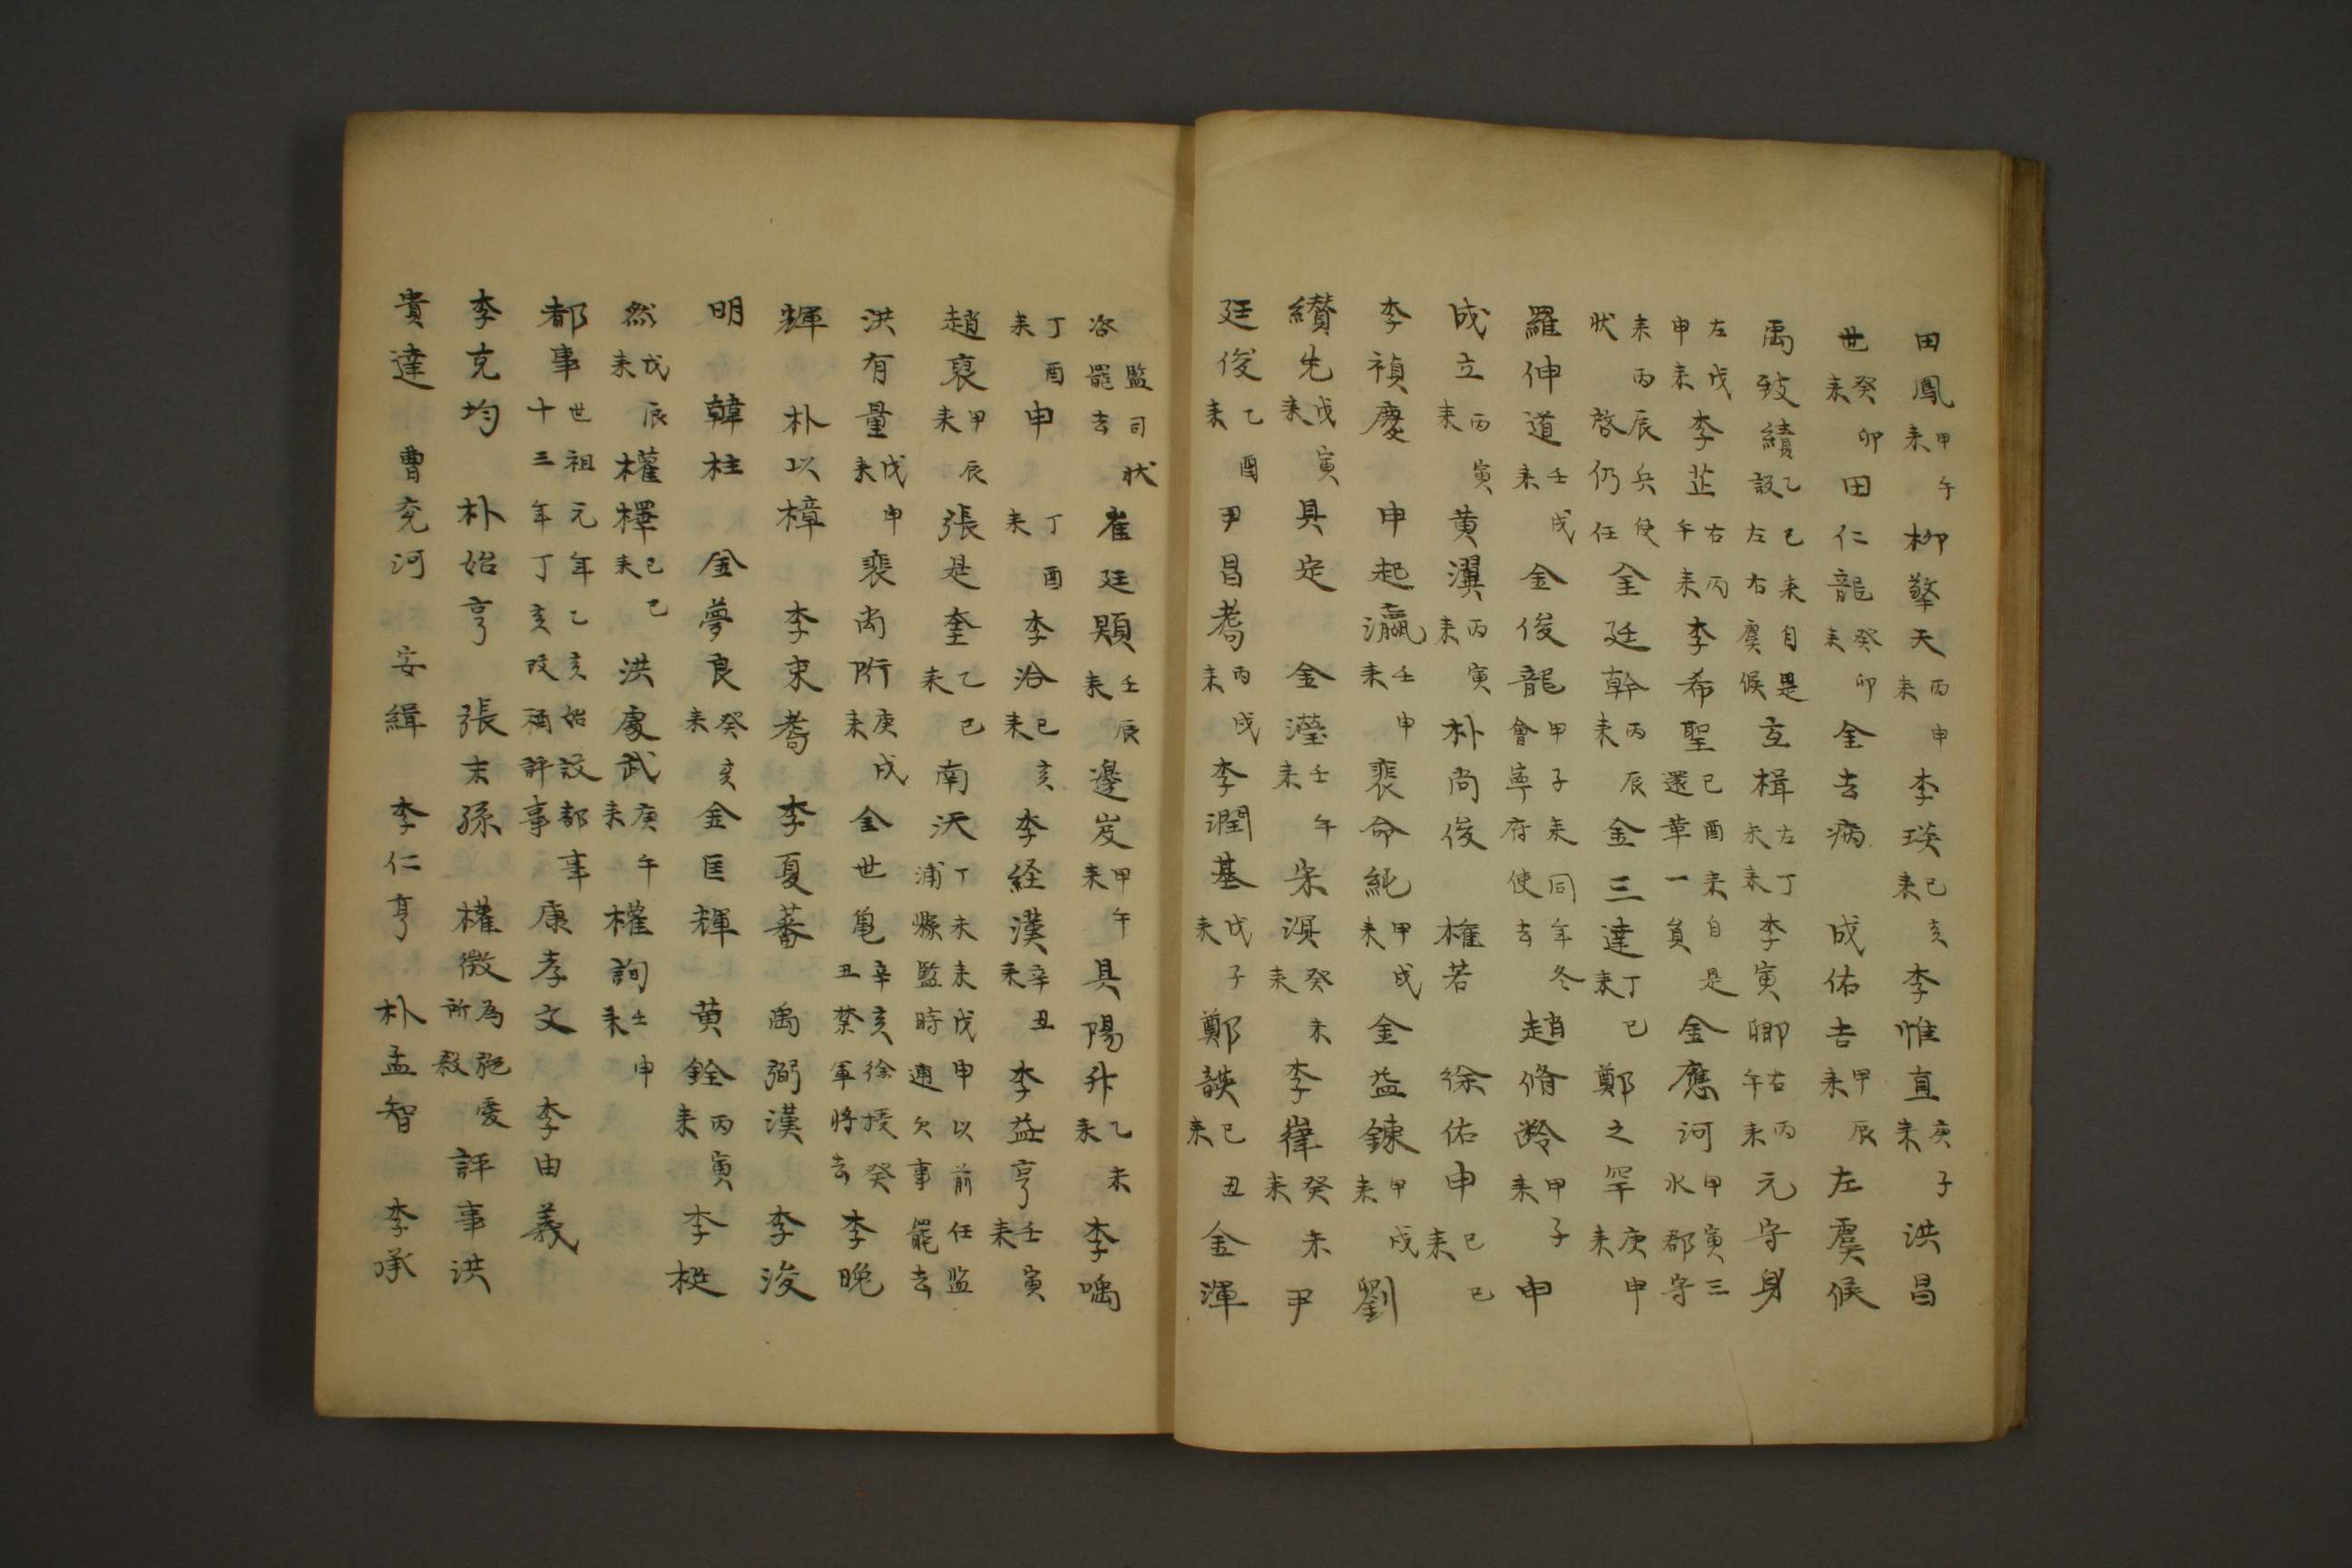 田鳳甲午來柳擎天丙申來李瑛己亥來李惟直庚子來洪昌
世癸卯來田仁龍癸卯來金去病 成佑吉甲辰來左虞候
禹致績乙巳來自是設左右虞候 楫左丁未來李寅卿右丙午來元守身
左戊申來李芷右丙午來李希聖己酉來自是還革一員金應河甲寅三水郡守
來丙辰兵使狀啓仍任全廷幹丙辰來金三達丁巳來鄭之罕庚申來
羅伸道壬戌來金俊龍甲子來同年冬會寧府使去趙脩齡甲子來申
成立丙寅來黃瀷丙寅來朴尚俊 權若 徐佑申己巳來
李禎慶 申起瀛壬申來裴命純甲戌來金益鍊甲戌來劉
纘先戊寅來具定 金瀅壬午來宋溟癸未來李嵂癸未來尹
廷俊乙酉來尹昌耇丙戌來李潤基戊子來鄭韺己丑來金渾
監司狀啓罷去崔廷顯壬辰來邊岌甲午來具陽升乙未來李㗕
丁酉來申 丁酉來李洽己亥來李経漢辛丑來李益亨壬寅來
趙裒甲辰來張是奎乙巳來南天丁未來戊申以前任監浦縣監時逋欠事罷去
洪有量戊申來裴尚珩庚戌來金世龜辛亥徐授癸丑禁軍將去李晚
輝 朴以樟 李束耉 李夏蕃 禹弼漢 李浚
明 韓柱 金夢良癸亥來金匡輝 黃銓丙寅來李梃
然戊辰來權檡己巳來洪處武庚午來權詢壬申來
都事世祖元年乙亥始設都事十三年丁亥改稱評事康孝文 李由義
李克均 朴始亨 張末孫 權徵為施愛所殺評事洪
貴達 曹克河 安緝 李仁亨 朴孟智 李承